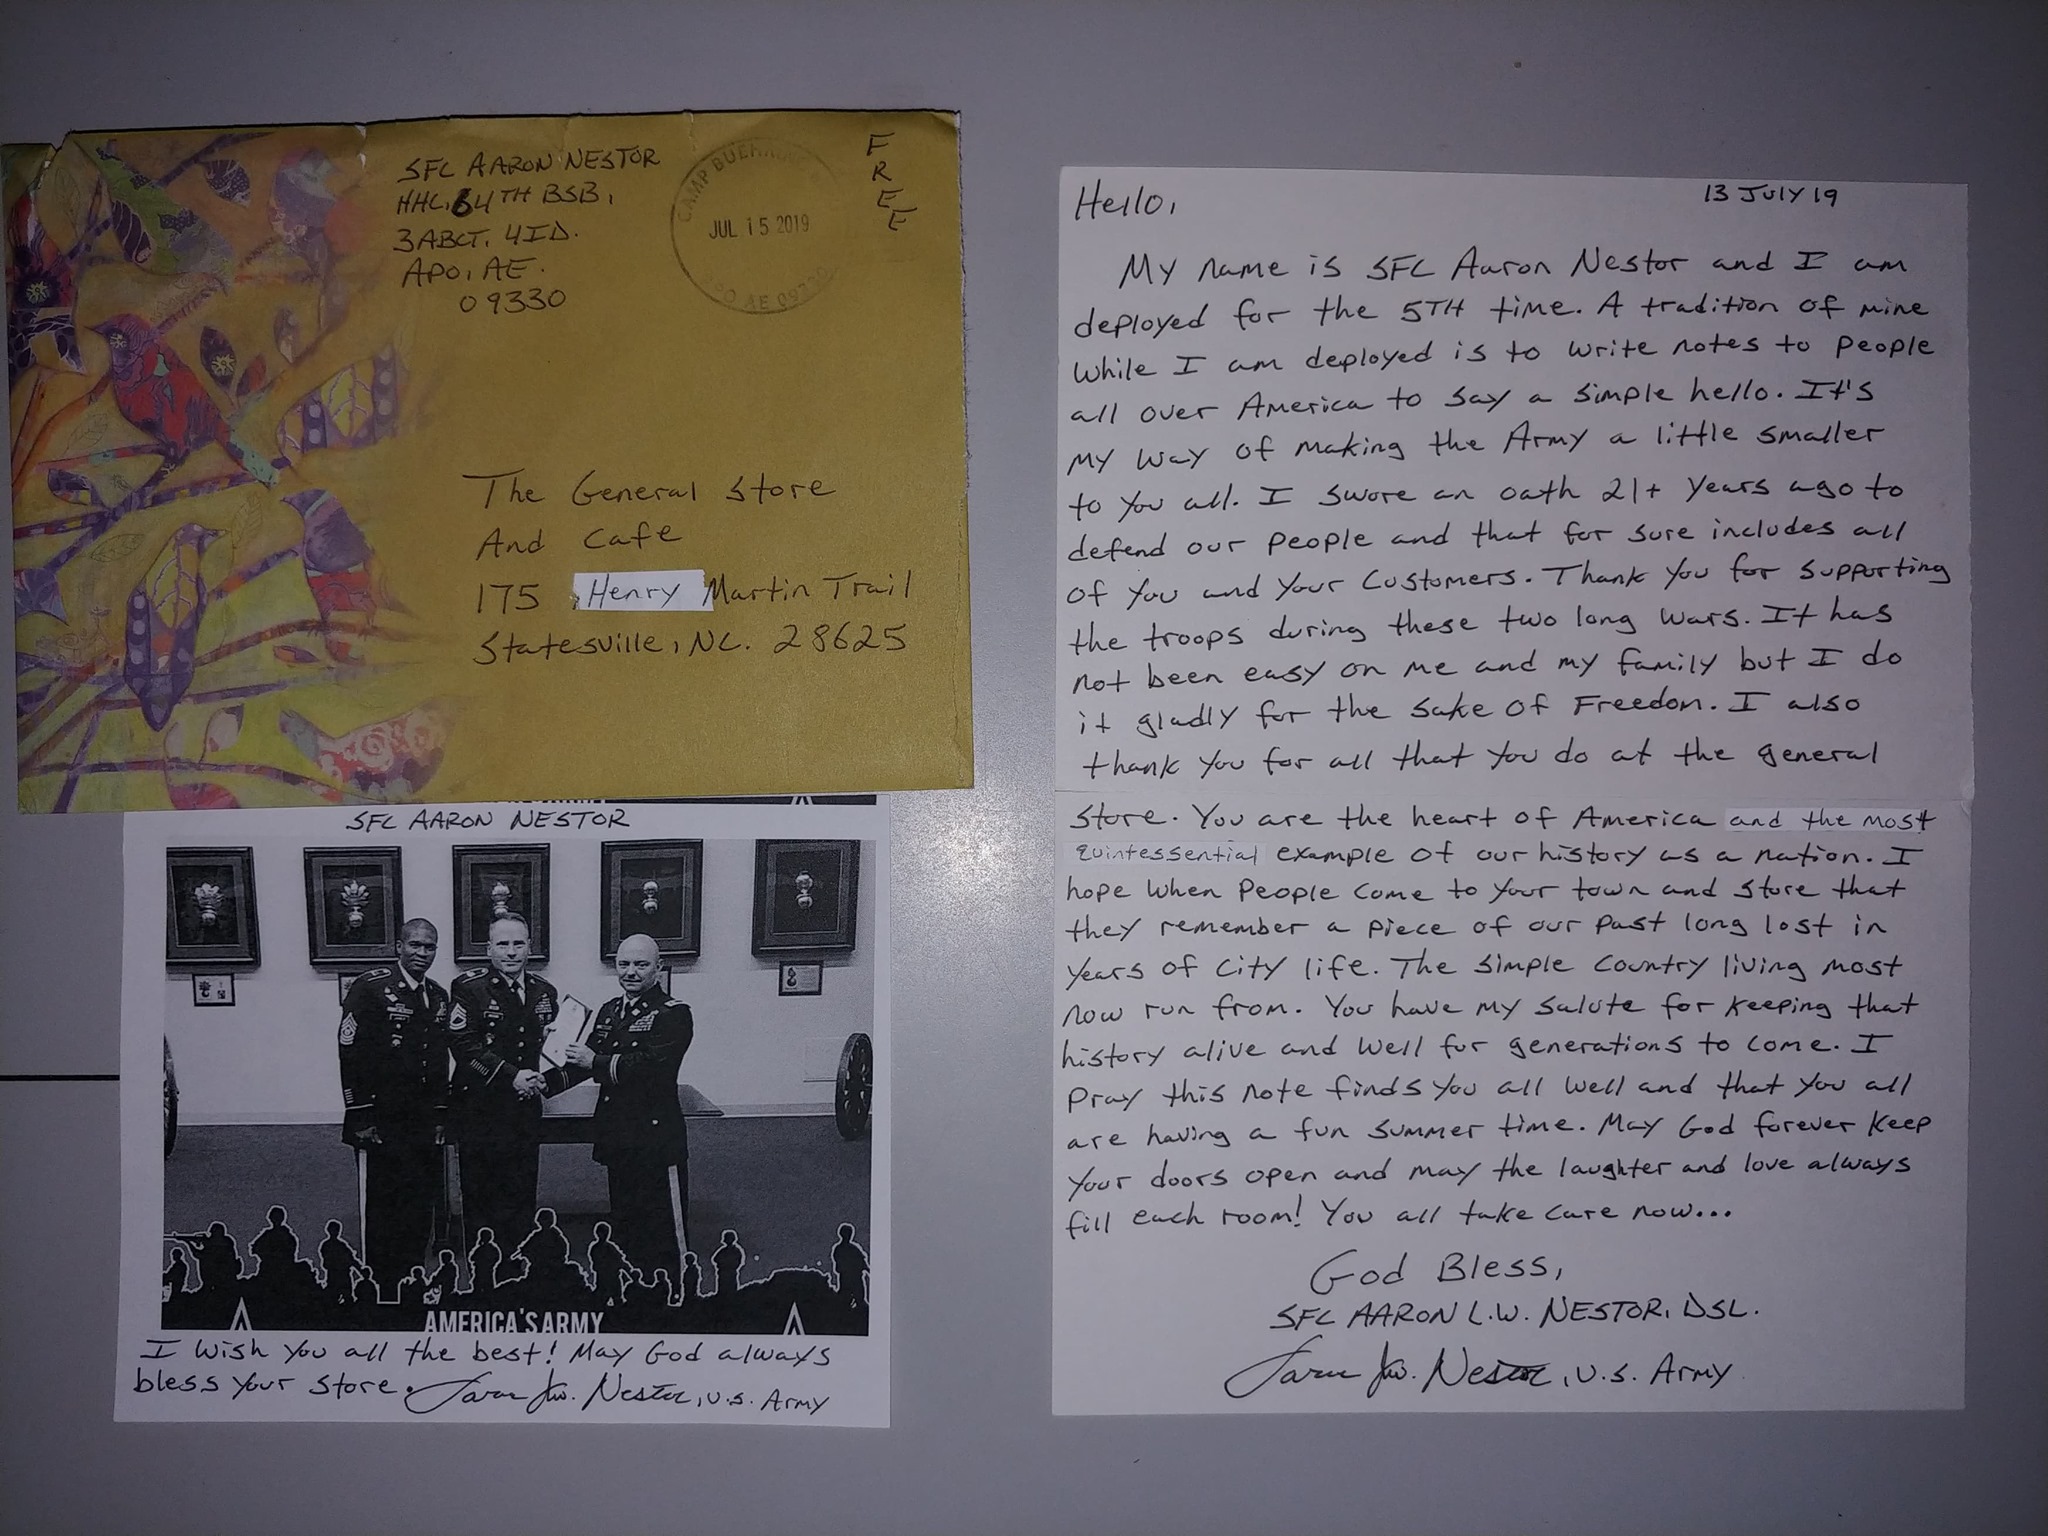 SFC AARON NESTOR
HHC, 64TH BSB,
3ABCT, 4ID.
APO, AE.
09330
CAMP
JUL 15 2019
APO AE 09330
FREE
The General Store
And Cafe
175 Henry Martin Trail
Statesville, NC. 28625
SFC AARON NESTOR
AMERICA'S ARMY
I wish you all the best! May God always
bless your store. Nestor, U.S. Army
13 July 19
Hello,
My name is SFC Aaron Nestor and I am
deployed for the 5TH time. A tradition of mine
while I am deployed is to write notes to people
all over America to say a simple hello. It's
my way of making the Army a little smaller
to you all. I swore an oath 21+ years ago to
defend our people and that for sure includes all
of you and your customers. Thank you for supporting
the troops during these two long wars. It has
not been easy on me and my family but I do
it gladly for the sake of Freedom. I also
thank you for all that you do at the general
store. You are the heart of America and the most
quintessential example of our history as a nation. I
hope when people come to your town and store that
they remember a piece of our past long lost in
years of city life. The simple country living most
now run from. You have my salute for keeping that
history alive and well for generations to come. I
pray this note finds you all well and that you all
are having a fun summer time. May God forever keep
your doors open and may the laughter and love always
fill each room! You all take care now...
God Bless,
SFC AARON L.W. NESTOR, DSL.
Nestor, U.S. Army